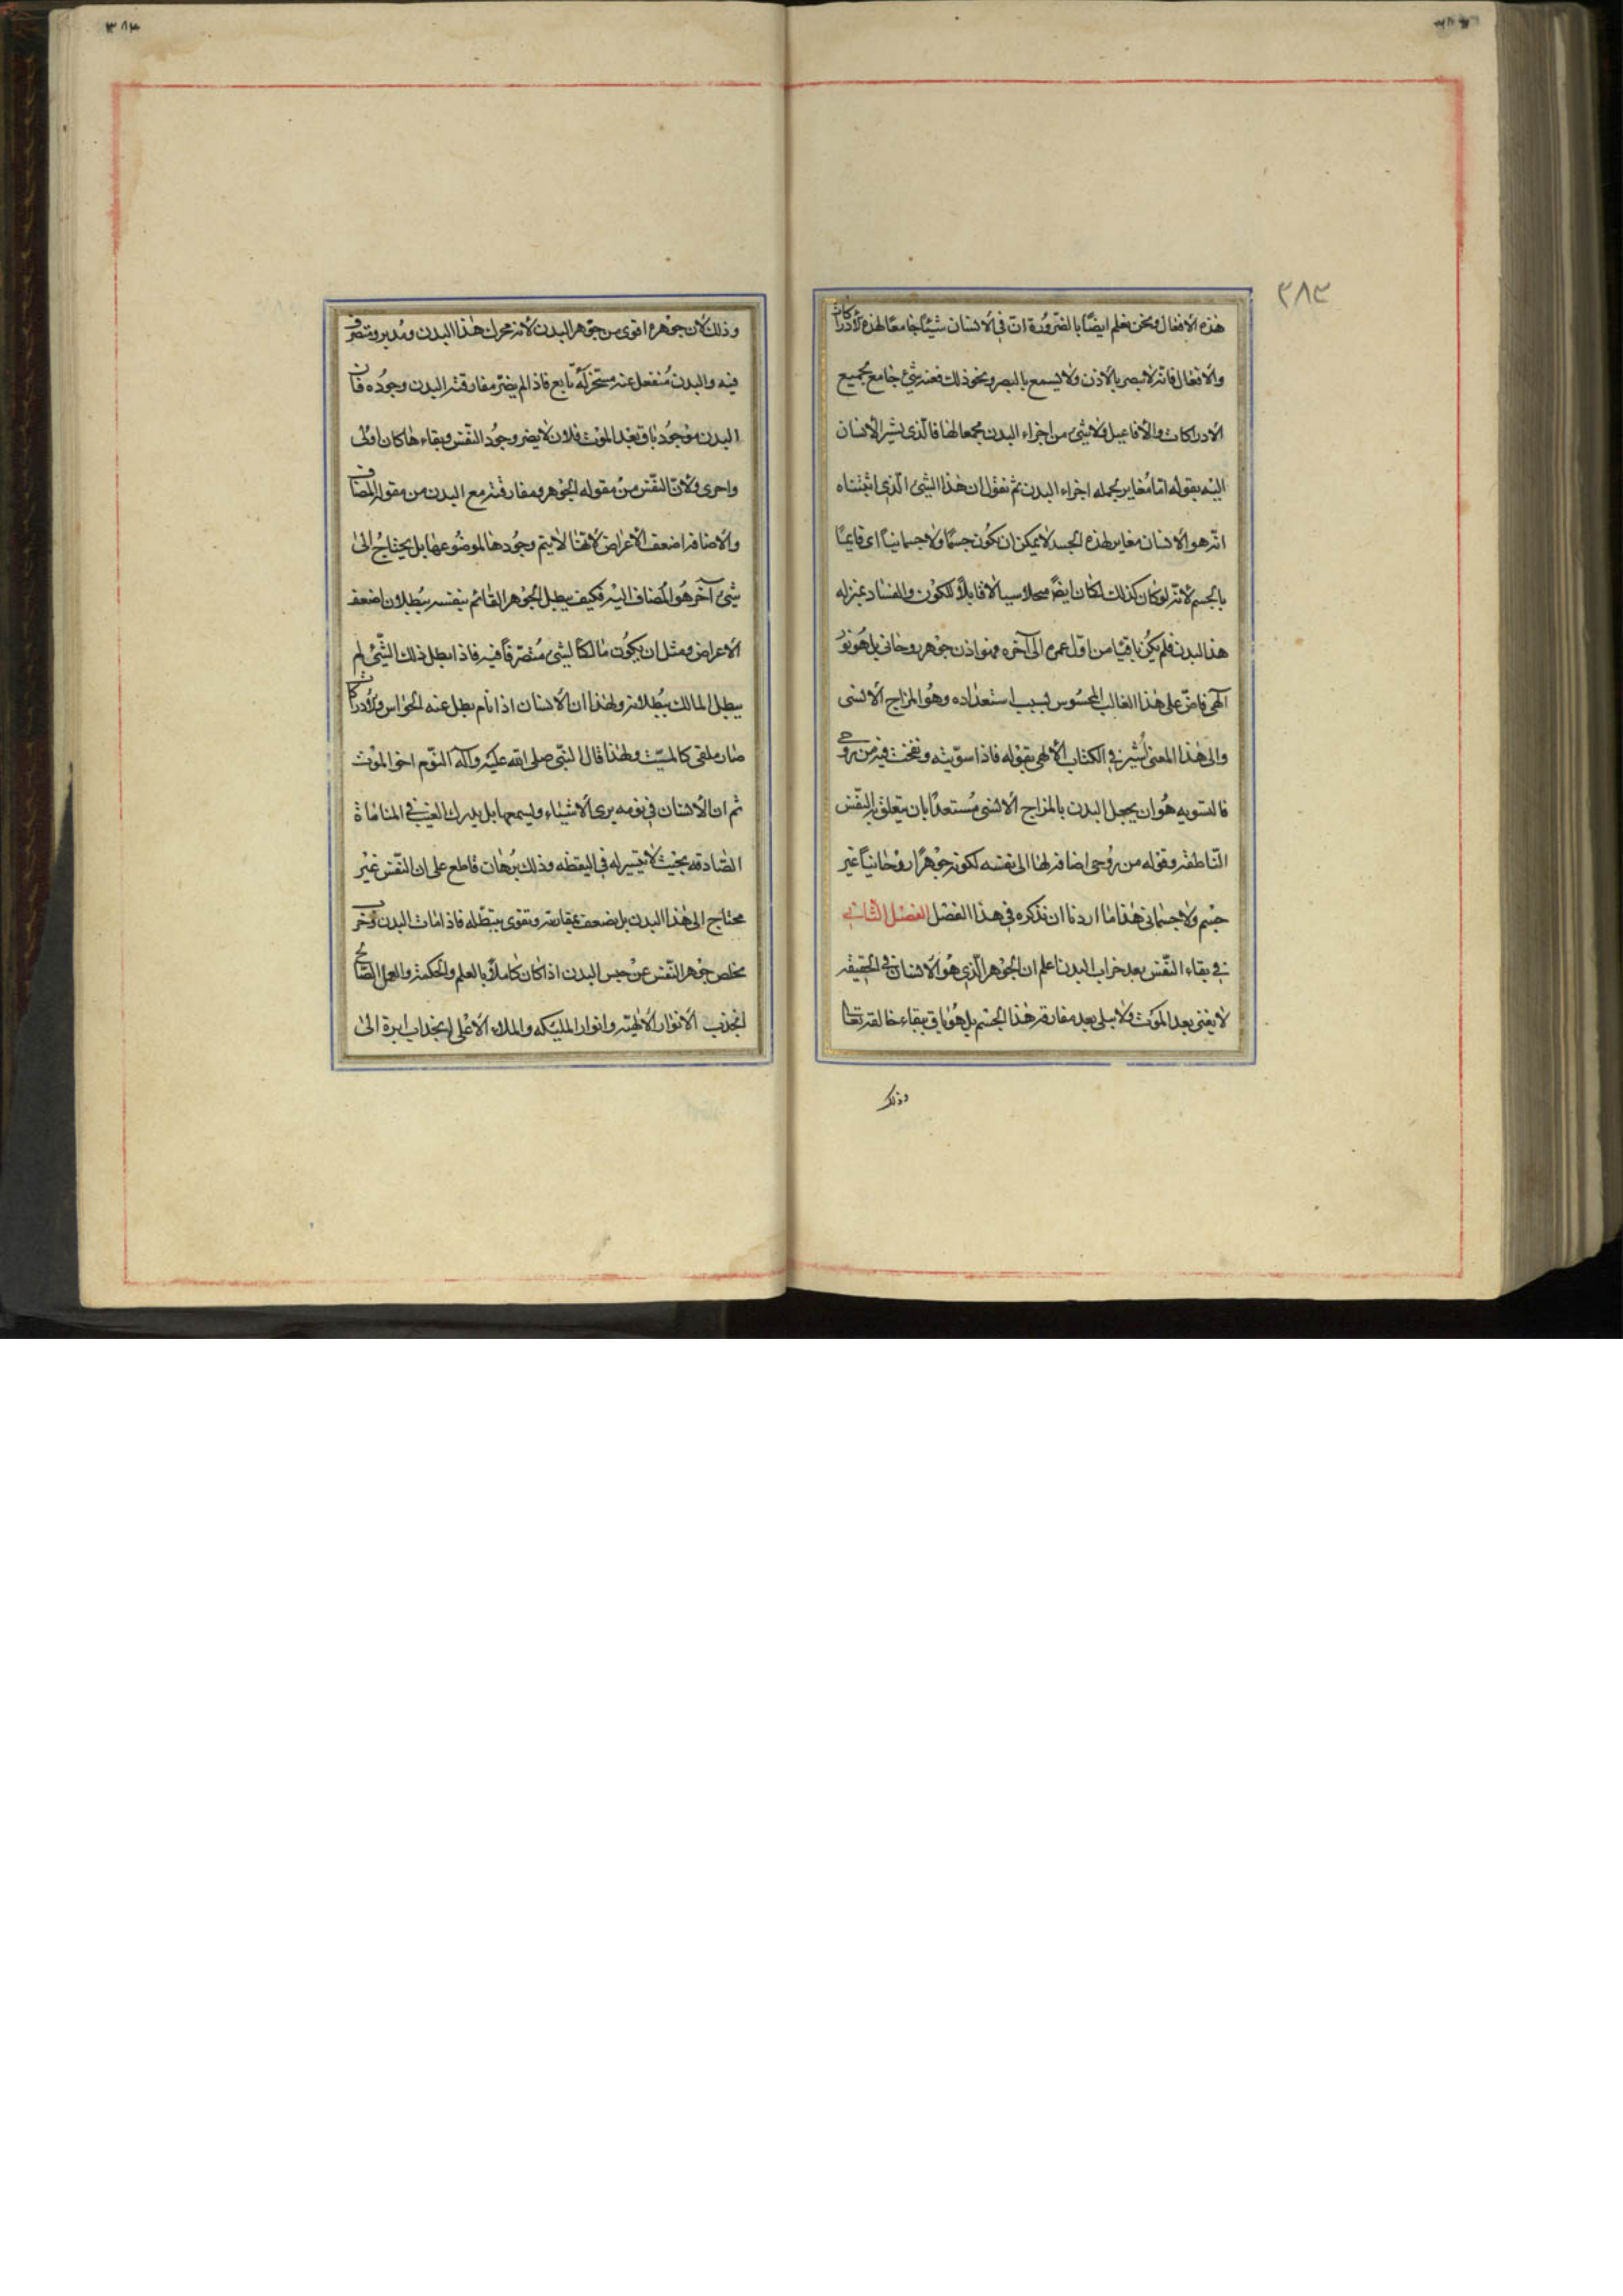 ٣٨٣
هذه الافعال ونحن نعلم ايضًا بالضرورة انّ في الانسان شيئًا جامعًا لهذه الادراكات
والافعال فانه لا يبصر بالاذن ولا يسمع بالبصر ونحو ذلك فعنه شئ جامع لجميع
الادراكات والافاعيل ولا شئ من اجزاء البدن مجمعا لها فالذي يشير الانسان
اليه بقوله انا مغاير لجمله اجزاء البدن ثم نقول ان هذا الشئ الّذي اثبتناه
انّه هو الانسان مغاير لهذه الجسد لا يمكن ان يكون جسمًا ولا جسمانيًا اى قايمًا
بالجسم لانّه لو كان كذلك لكان ايضًا منحلا سيالا قابلاً للكون والفساد بمنزله
هذ البدن فلم يكن باقيًا من اول عمره الى آخره فهو اذن جوهر روحانى بل هو نور
آلهى فاض على هذا القالب المحسوس بسبب استعداده وهو المزاج الانسى
والى هذا المعنى اُشير في الكتاب الالهى بقوله فاذا سوّيته ونفخت فيه من روحي
فالتسويه هو ان يجعل البدن بالمزاج الانسى مُستعدًا بان يتعلق به النّفس
النّاطقه وقوله من رُوحى اضافه لها الى نفسه لكونه جوهرًا روحانيًا غير
جسم ولا جسمانى هذا ما اردنا ان نذكره في هذا الفصل الفصل الثانى
في بقاء النّفس بعد خراب البدن اعلم ان الجوهر الّذي هو الانسان في الحقيقه
لا يفنى بعد الموت ولا يبلى بعد مفارقه هذا الجسم بل هو باق ببقاء خالقه تعالى
وذلك
٣٨٣
وذلك لان جوهره اقوى من جوهر البدن لانه محرك هذا البدن ومُدبر ومتصرف
فيه والبدن مُنفعل عنه مستخر له تابع فاذ الم يضرّ مفارقته البدن وجوده فان
البدن موجود باق بعد الموت فلان لا يضر وجود النّفس وبقاءها كان اولى
واحرى ولانّ النّفس من مقوله الجوهر ومفارقته مع البدن من مقوله المضاف
والاضافه اضعف الاعراض لانها لا يتم وجودها لموضوعها بل يحتاج الى
شئ آخر هو المضاف اليه فكيف يبطل الجوهر القائم بنفسه ببُطلان اضعف
الاعراض ومثل ان يكون مالكًا لشئ مُتصرّفًا فيه فاذا بطل ذلك الشّئ لم
يبطل المالك ببُطلانه ولهذا ان الانسان اذا نام بطل عنه الحواس والادراكات
صار ملقى كالميّت ولهذا قال النّبى صلى الله عليه وآله النّوم اخو الموت
ثم ان الانسان في نومه يرى الاشياء ويسمعها بل يدرك الغيب في المنامات
الصّادقه بحيث لا يتيسر له في اليقظه وذلك بُرهان قاطع على ان النّفس غير
محتاج الى هذا البدن بل يضعف بمقارنته وتقوى بتعطله فاذ امات البدن وخرب
تخلص جوهر النّفس عن حبس البدن اذا كان كاملاً بالعلم والحكمة والعمل الصّالح
انجذب الانوار الالهيّة وانوار المليكه والملاء الاعلى انجذاب ابرة الى